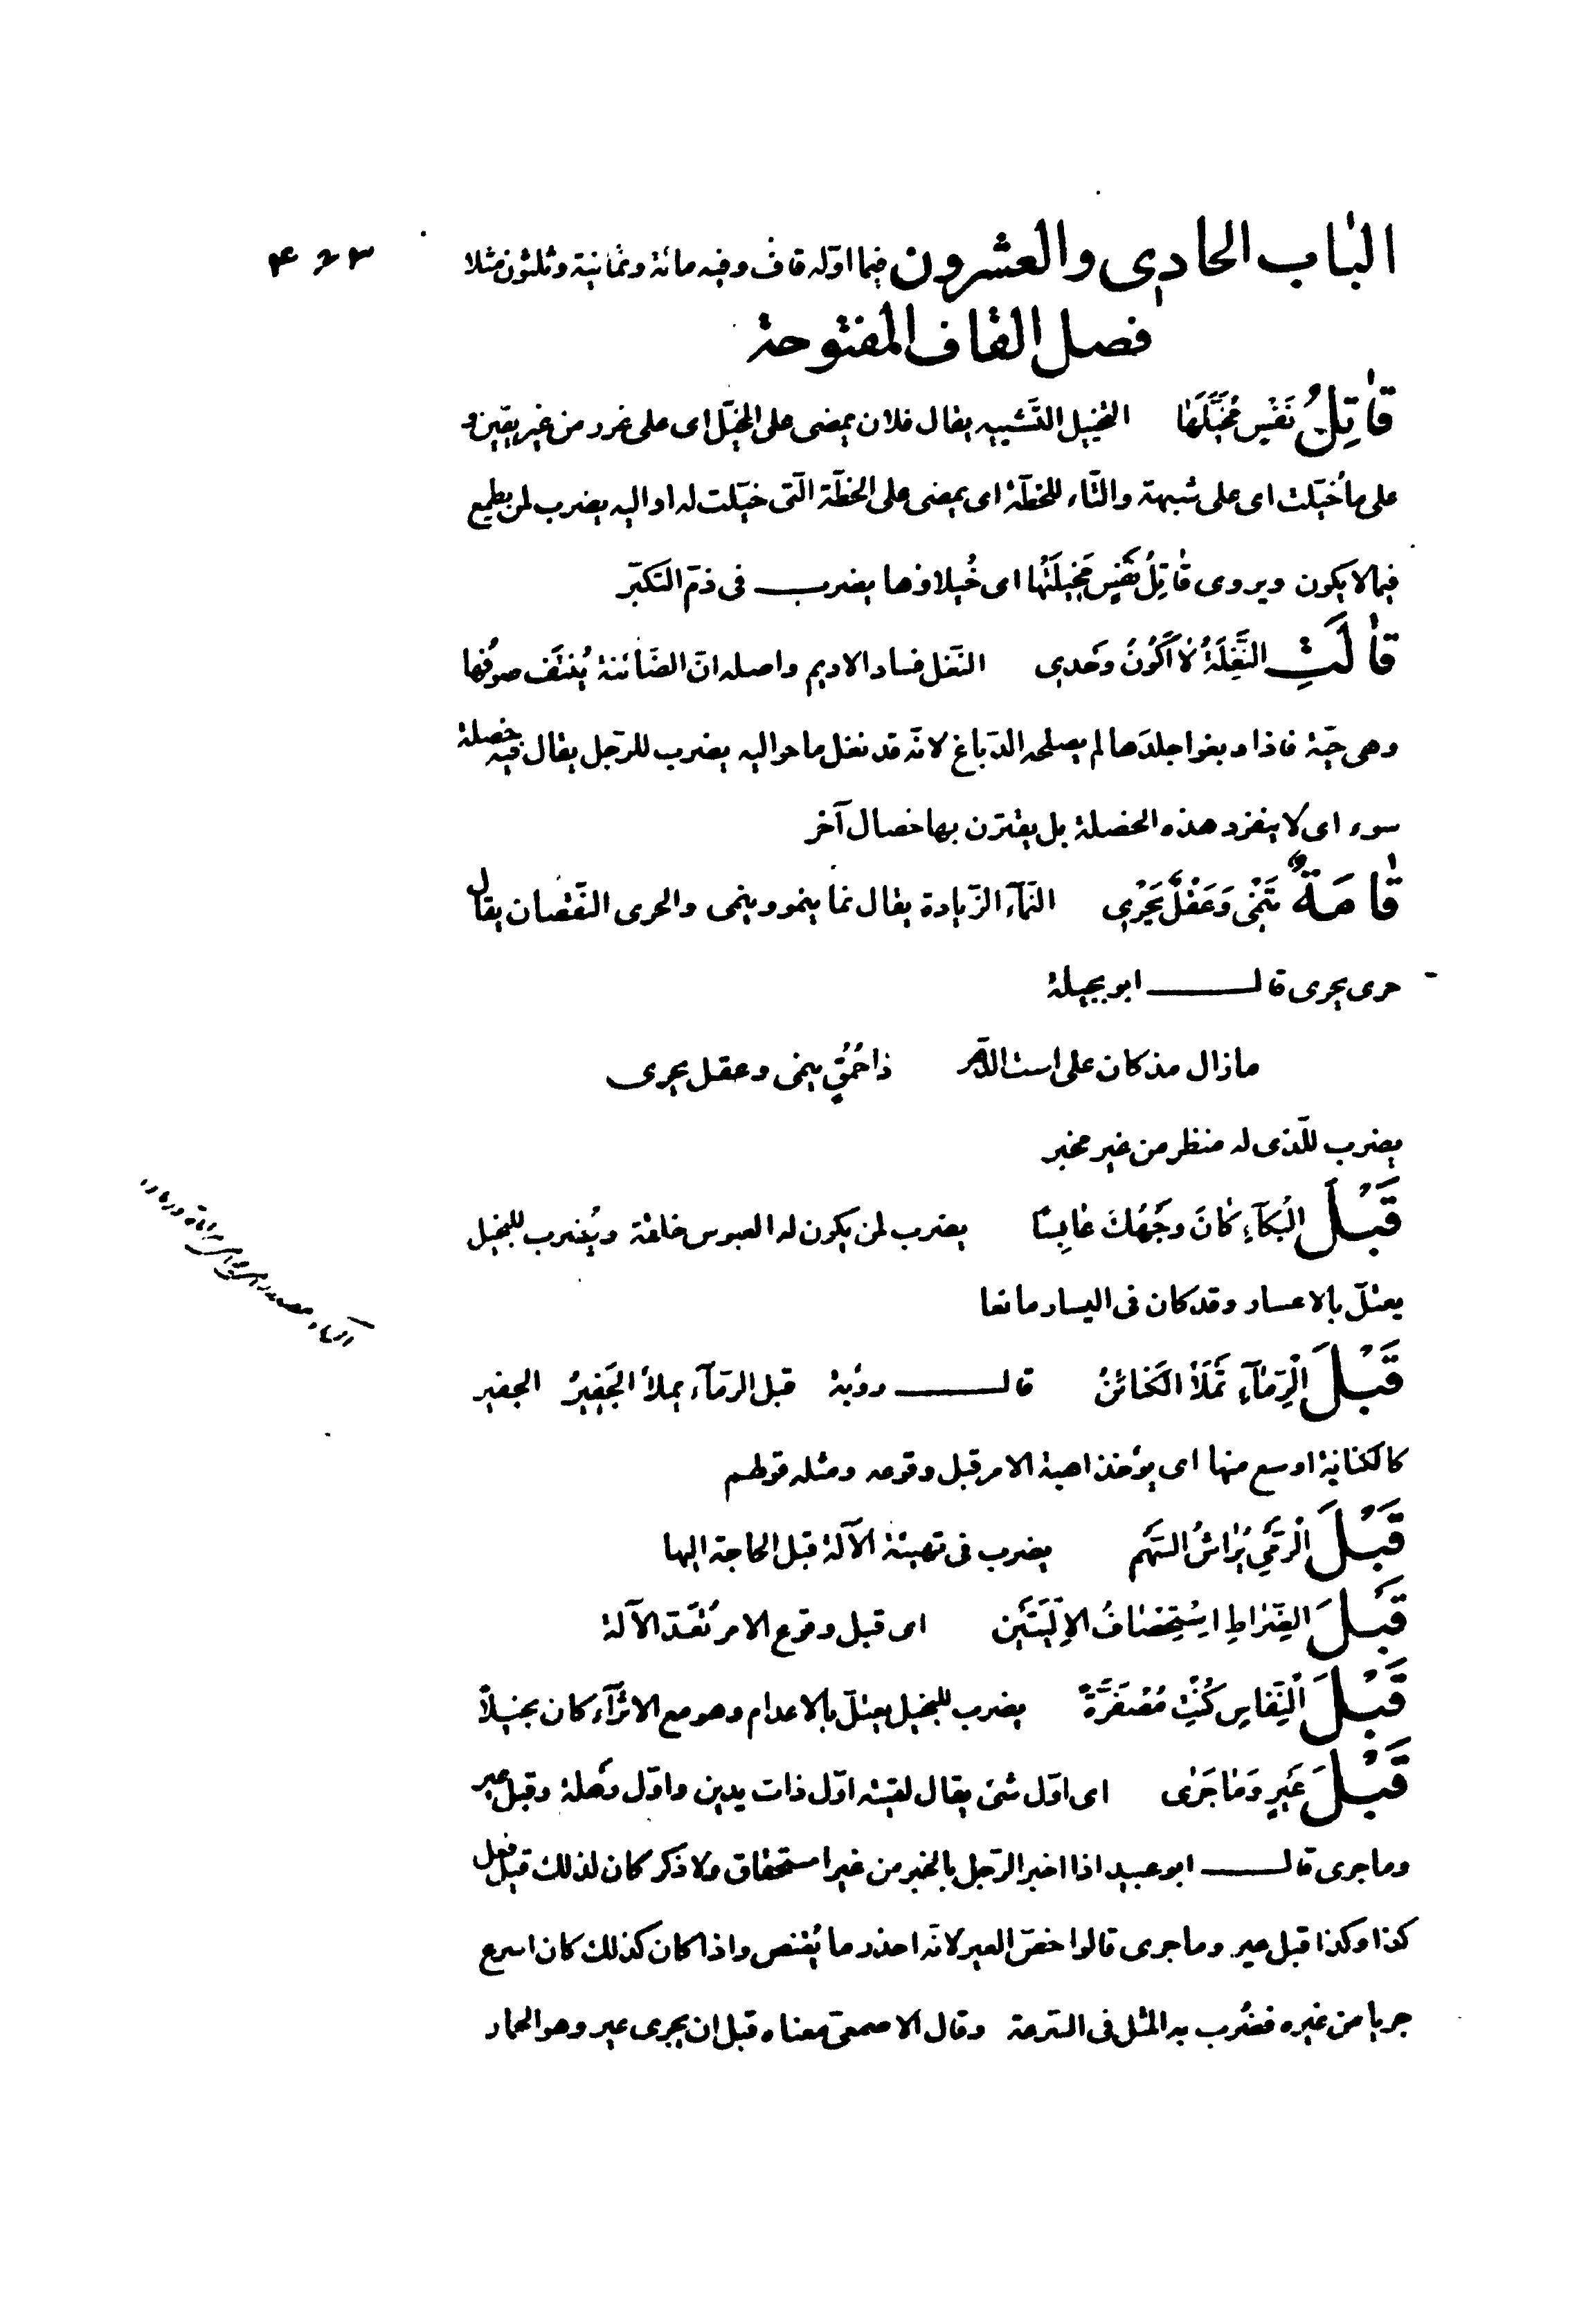 الباب الحادي والعشرون فيما اوّله قاف وفيه مائة وثمانية وثلثون مثلا
فصل القاف المفتوحة
قٰاتِلُ نَفْسٍ مُخَيَّلَهٰا التخييل التّشبيه يقال فلان يمضى على المخيّل اى على غرر من غير يقين و
على ما خيّلت اى على شبهة والتّاء للخطّة اى يمضى على الخطّة الّتى خيّلت له او اليه يضرب لمن يطمع
فيما لا يكون ويروى قٰاتِلُ نَفْسٍ مَخيلَتُها اى خُيلاؤها يضرب فى ذمّ التّكبّر
قٰالَتِ النَّغِلَةُ لاٰ اَكُونُ وَحْدي النّغل فساد الاديم واصله انّ الضّائنة يُنتَف صوفُها
وهى حيّة فاذا دبغوا جلدَها لم يصلحه الدّباغ لانّه قد نغل ما حواليه يضرب للرّجل يقال فيه خصلة
سوء اى لا ينفرد هذه الخصلة بل يقترن بها خصال آخر
قٰامَةٌ تَنْمي وَعَقْلٌ يَحْري النّمآء الزّيادة يقال نما ينمو وينمى والحرى النّقصان يقال
حرى يحرى قال ابو نجيلة
ما زال مذ كان على است الدّهر ذا حُمُقٍ ينمى وعقل يحرى
يضرب للّذى له منظر من غير مخبر
قَبْلَ الْبُكآءِ كٰانَ وَجْهُكَ عٰابِسًا يضرب لمن يكون له العبوس خلقة ويُضرب للبخيل
يعتلّ بالاعسار وقد كان فى اليسار مانعا
قَبْلَ الْرِمٰآءِ تُمْلَأُ الكَنائنُ قال رؤبة قبل الرّمآء يملأ الجَفيرُ الجفير
كالكنانة اوسع منها اى يؤخذ اهبة الامر قبل وقوعه ومثله قولهم
قَبْلَ الْرَمْيِ يُرٰاشُ السَّهْمُ يضرب فى تهيئة الآلة قبل الحاجة اليها
قَبْلَ الضِّرٰاطِ اسْتِحْصٰافُ الاَلْيَتَيْنِ اى قبل وقوع الامر تُعَدّ الآلة
قَبْلَ الْنِّفٰاسِ كُنْتِ مُصْفَرَّةً يضرب للبخيل يعتلّ بالاعدام وهو مع الاثرآء كان بخيلاً
قَبْلَ عَيْرٍ وَمٰا جَرٰى اى اوّل شئ يقال لقيته اوّل ذات يدين واوّل وَهلة وقبل عير
وما جرى قال ابو عبيد اذا اخبر الرّجل بالخبر من غير استحقاق ولا ذكر كان لذلك قيل فعل
كذا وكذا قبل عير وما جرى قالوا خصّ العير لانّه احذر ما يُقنص واذا كان كذلك كان اسرع
جريا من غيره فضُرب به المثل فى السّرعة وقال الاصمعىّ معناه قبل ان يجرى عير وهو الحمار